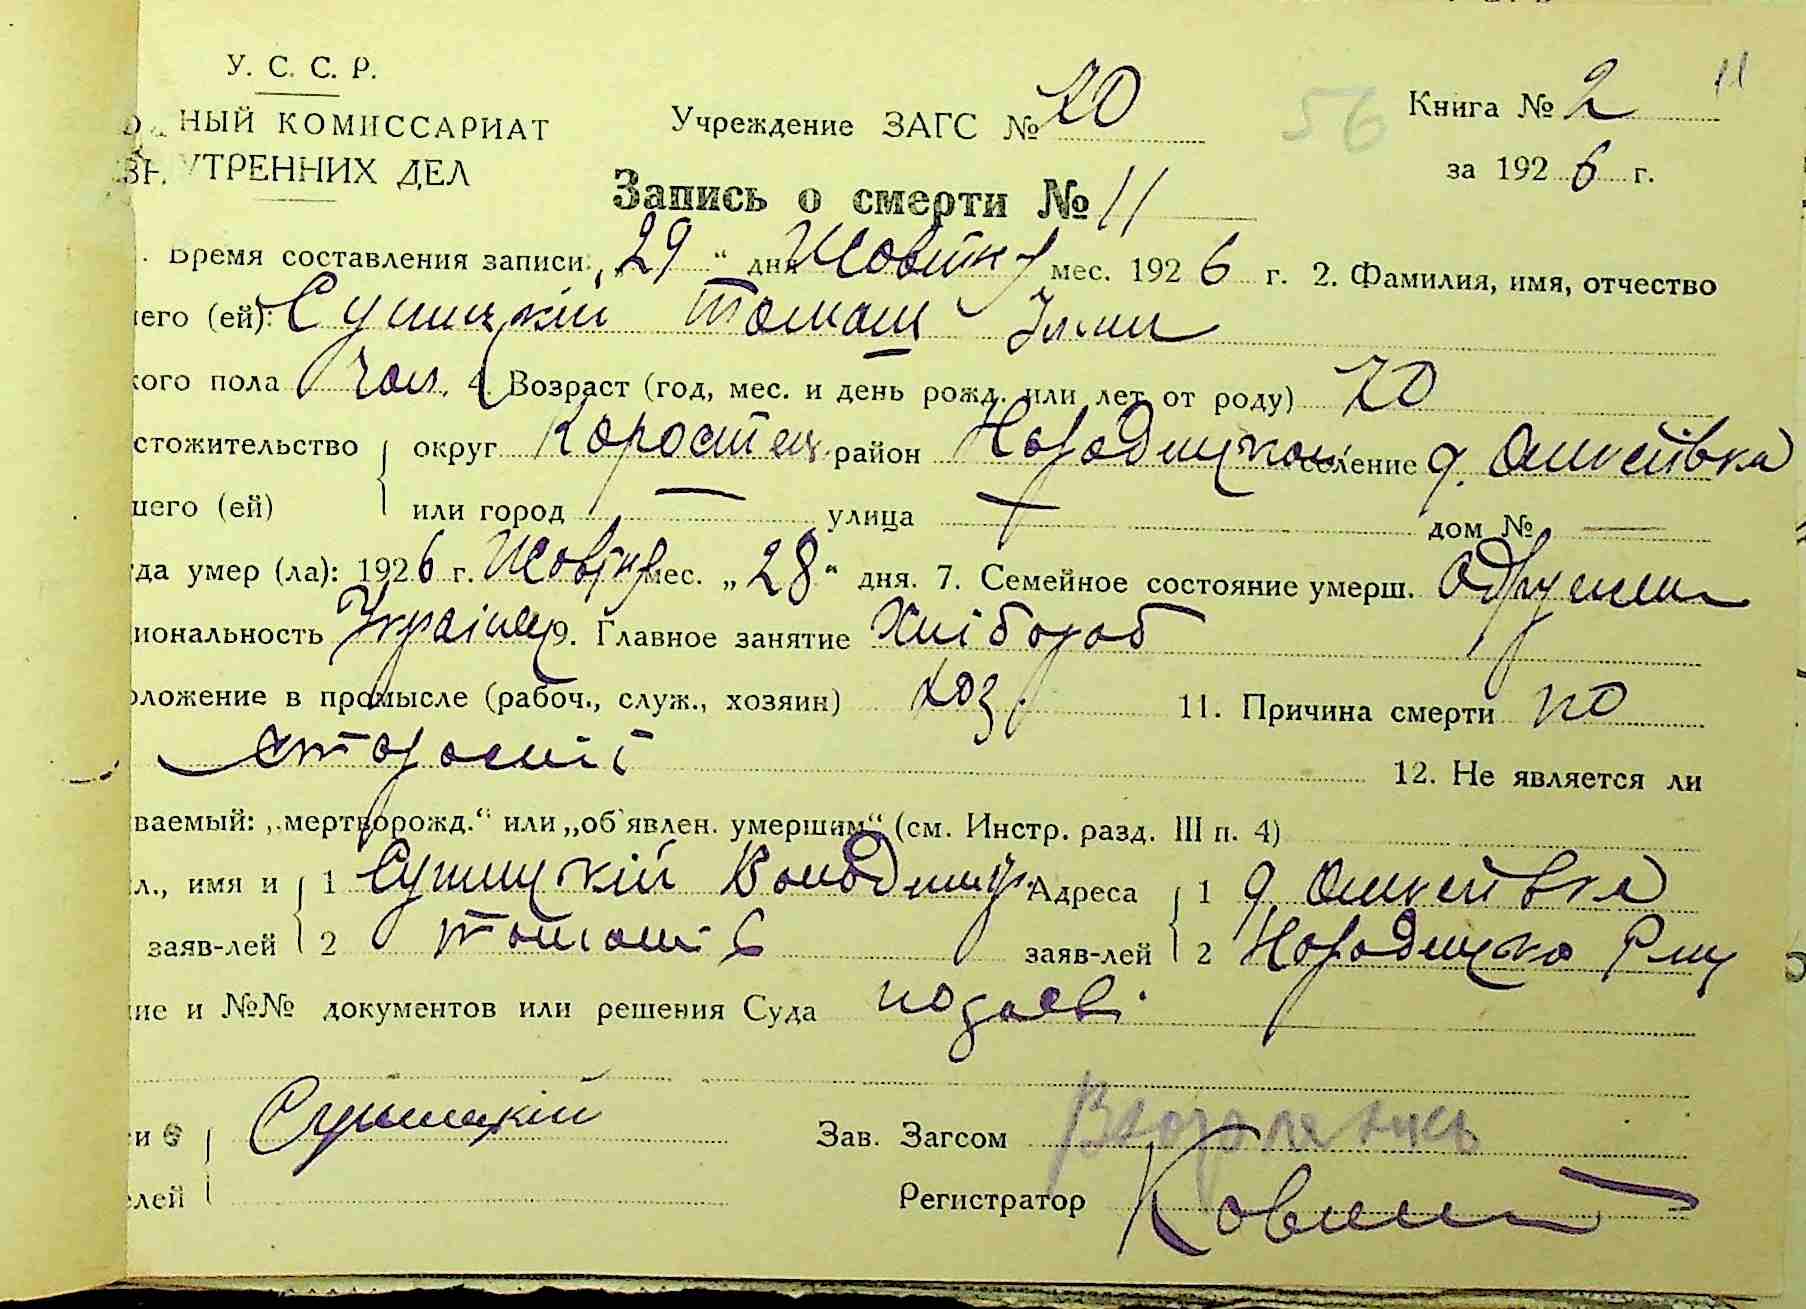 У. С. С. Р.
НЫЙ КОМИССАРИАТ
УТРЕННИХ ДЕЛ
Учреждение ЗАГС № 20
56
Книга № 2
11
за 1926 г.
Запись о смерти № 11
Время составления записи: „29“ дня Жовтня мес. 1926 г. 2. Фамилия, имя, отчество
его (ей): Сушицкій Томаш
кого пола чол. 4. Возраст (год, мес. и день рожд. или лет от роду) 70
стожительство округ Коростец. район Народицком селение д.
шего (ей) или город — улица — дом № —
да умер (ла): 1926 г. Жовтня мес. „28“ дня. 7. Семейное состояние умерш.
иональность Украінец 9. Главное занятие Хлібороб
оложение в промысле (рабоч., служ., хозяин) хоз. 11. Причина смерти по
старости 12. Не является ли
ваемый: „мертворожд.“ или „об'явлен. умершим“ (см. Инстр. разд. III п. 4)
л., имя и 1 Сушицкій Володимир Адреса 1 д
заяв-лей 2 заяв-лей 2 Народицко
ие и №№ документов или решения Суда
и Сушицкій Зав. Загсом
елей Регистратор